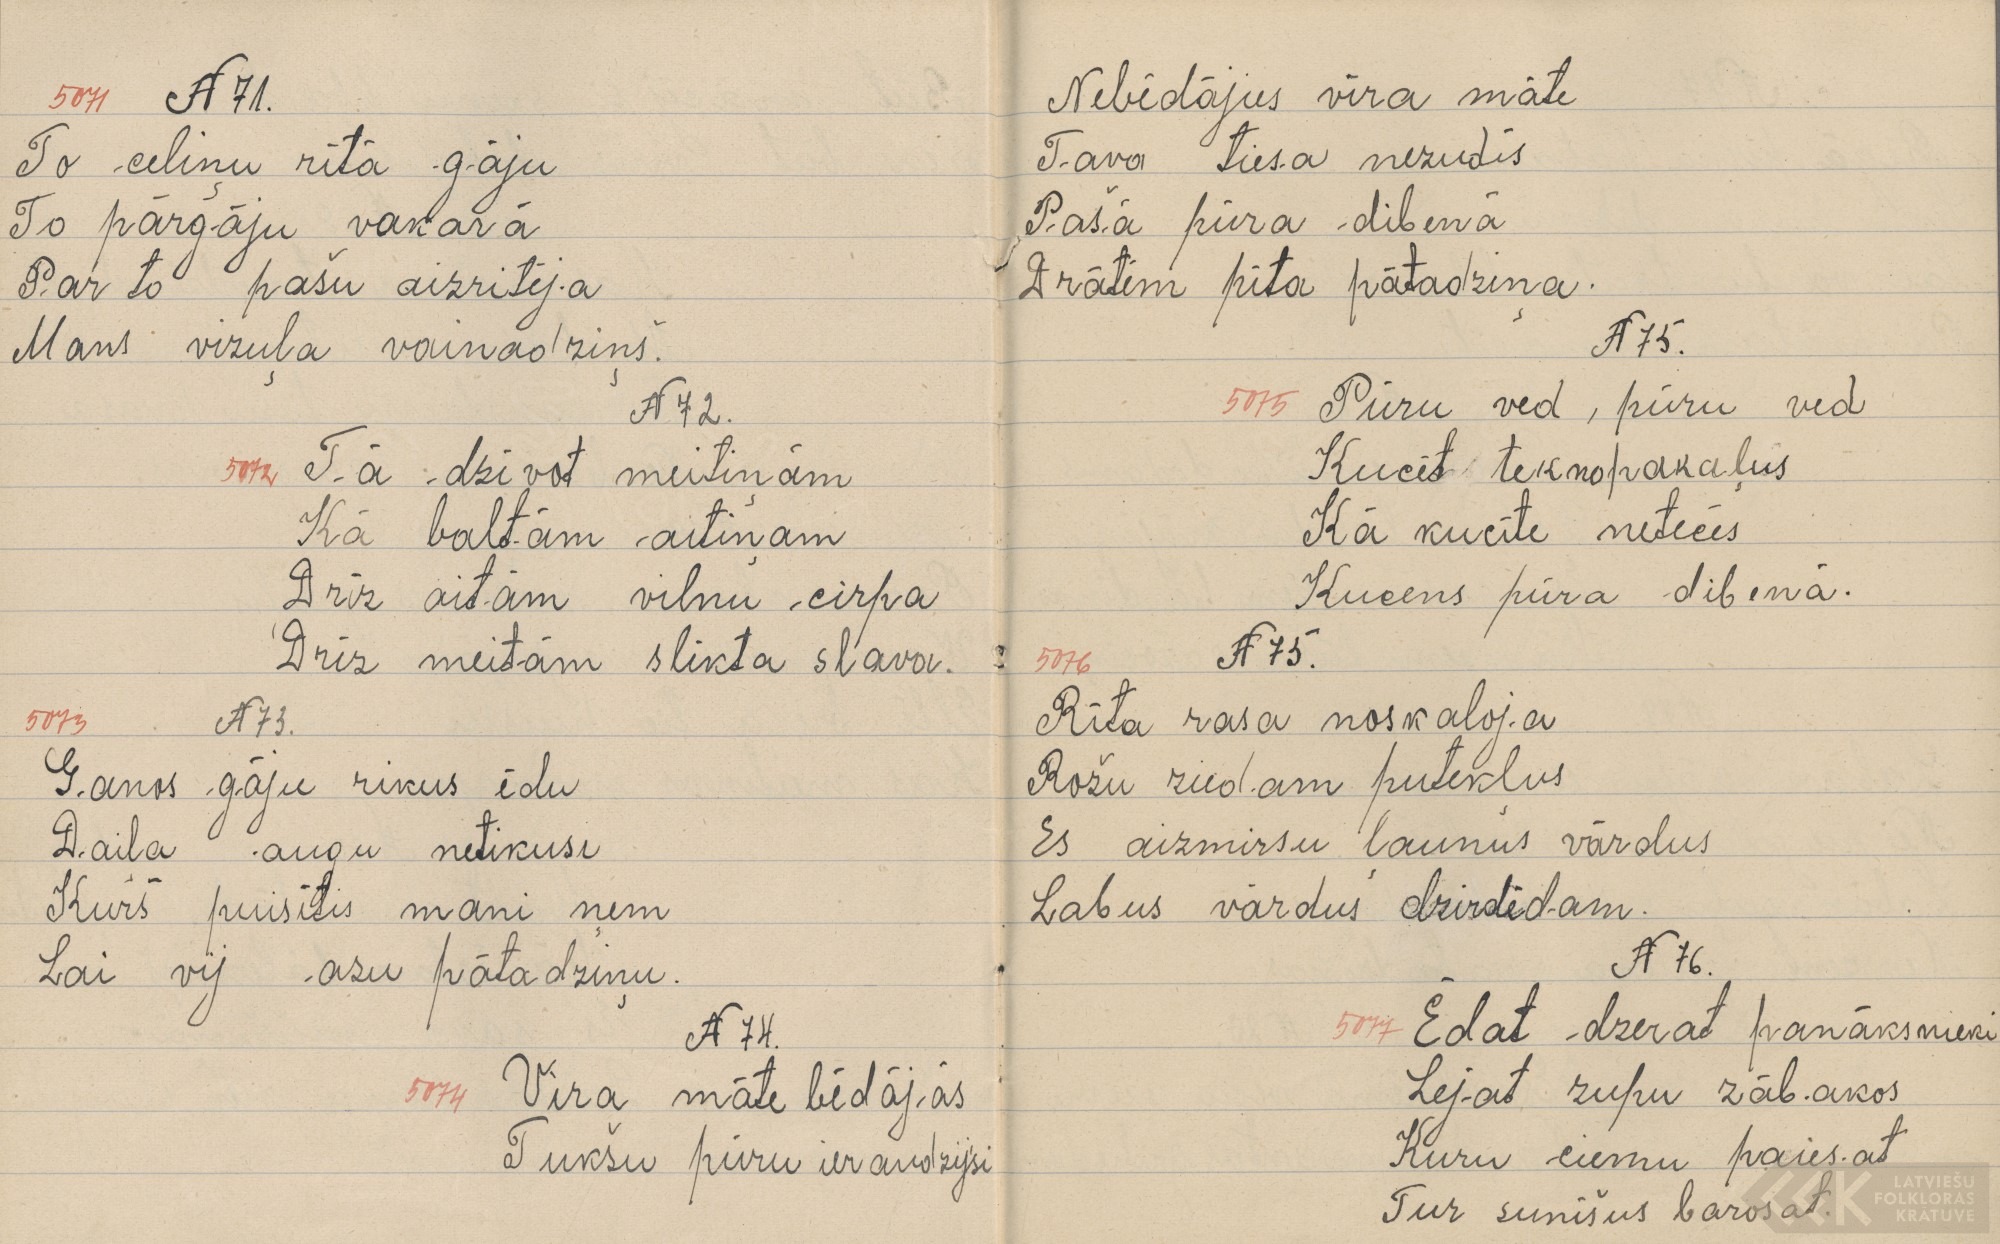 5071 N 71.
To celiņu rītā gāju
To pārgāju vakarā
Par to pašu aizritēja
Mans vizuļa vainadziņš.
N 72.
5072 Tā dzīvot meitiņām
Kā baltām aitiņam
Drīz aitām vilnu cirpa
Drīz meitām slikta slava.
5073 N 73.
Ganos gāju rikus ēdu
Daiļa augu netikusi
Kurš puisītis mani ņem
Lai vij azu pātadziņu.
N 74.
5074 Vīra māte bēdājās
Tukšu pūru ieraudzijsi
Nebēdājies vīra māte
Tava tiesa nezudīs
Pašā pūra dibenā
Drātēm pīta pātadziņa.
N 75.
5075 Pūru ved, pūru ved
Kucēt tek nopakaļus
Kā kucīte netecēs
Kucens pūra dibenā.
5076 N 75.
Rīta rasa noskaloja
Rožu ziedam putekļus
Es aizmirsu ļaunus vārdus
Labus vārdus dzirdēdam.
N 76.
5077 Ēdat dzerat panāksnieki
Lejat zupu zābakos
Kuru ciemu paiesat
Tur sunišus barosat.
LATVIEŠU
FOLKLORAS
KRATUVE